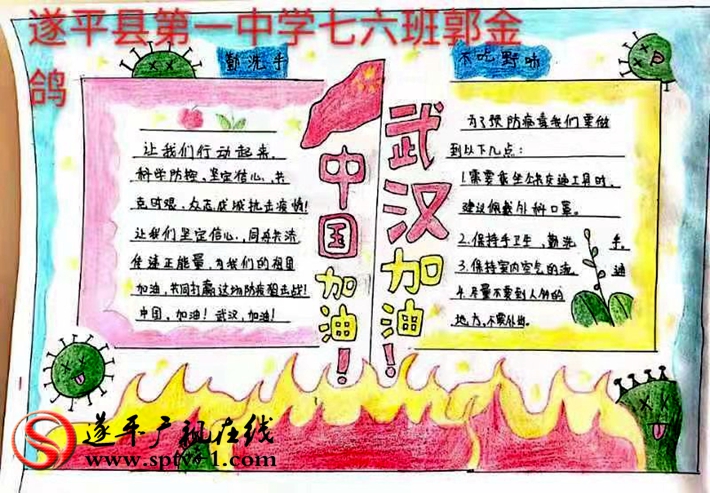 遂平县第一中学七六班郭金
鸽
勤洗手
不吃野味
让我们行动起来，
科学防控，坚定信心，共
克时艰，众志成城抗击疫情！
让我们坚定信心，同舟共济
传递正能量，为我们的祖国
加油，共同打赢这场防疫狙击战！
中国，加油！武汉，加油！
中国加油！
武汉加油！
为了预防病毒我们要做
到以下几点：
1.需要乘坐公共交通工具时，
建议佩戴外科口罩。
2.保持手卫生，勤洗手。
3.保持室内空气的流通
4.尽量不要到人多的
地方，不要外出。
遂平广视在线
www.sptv-1.com